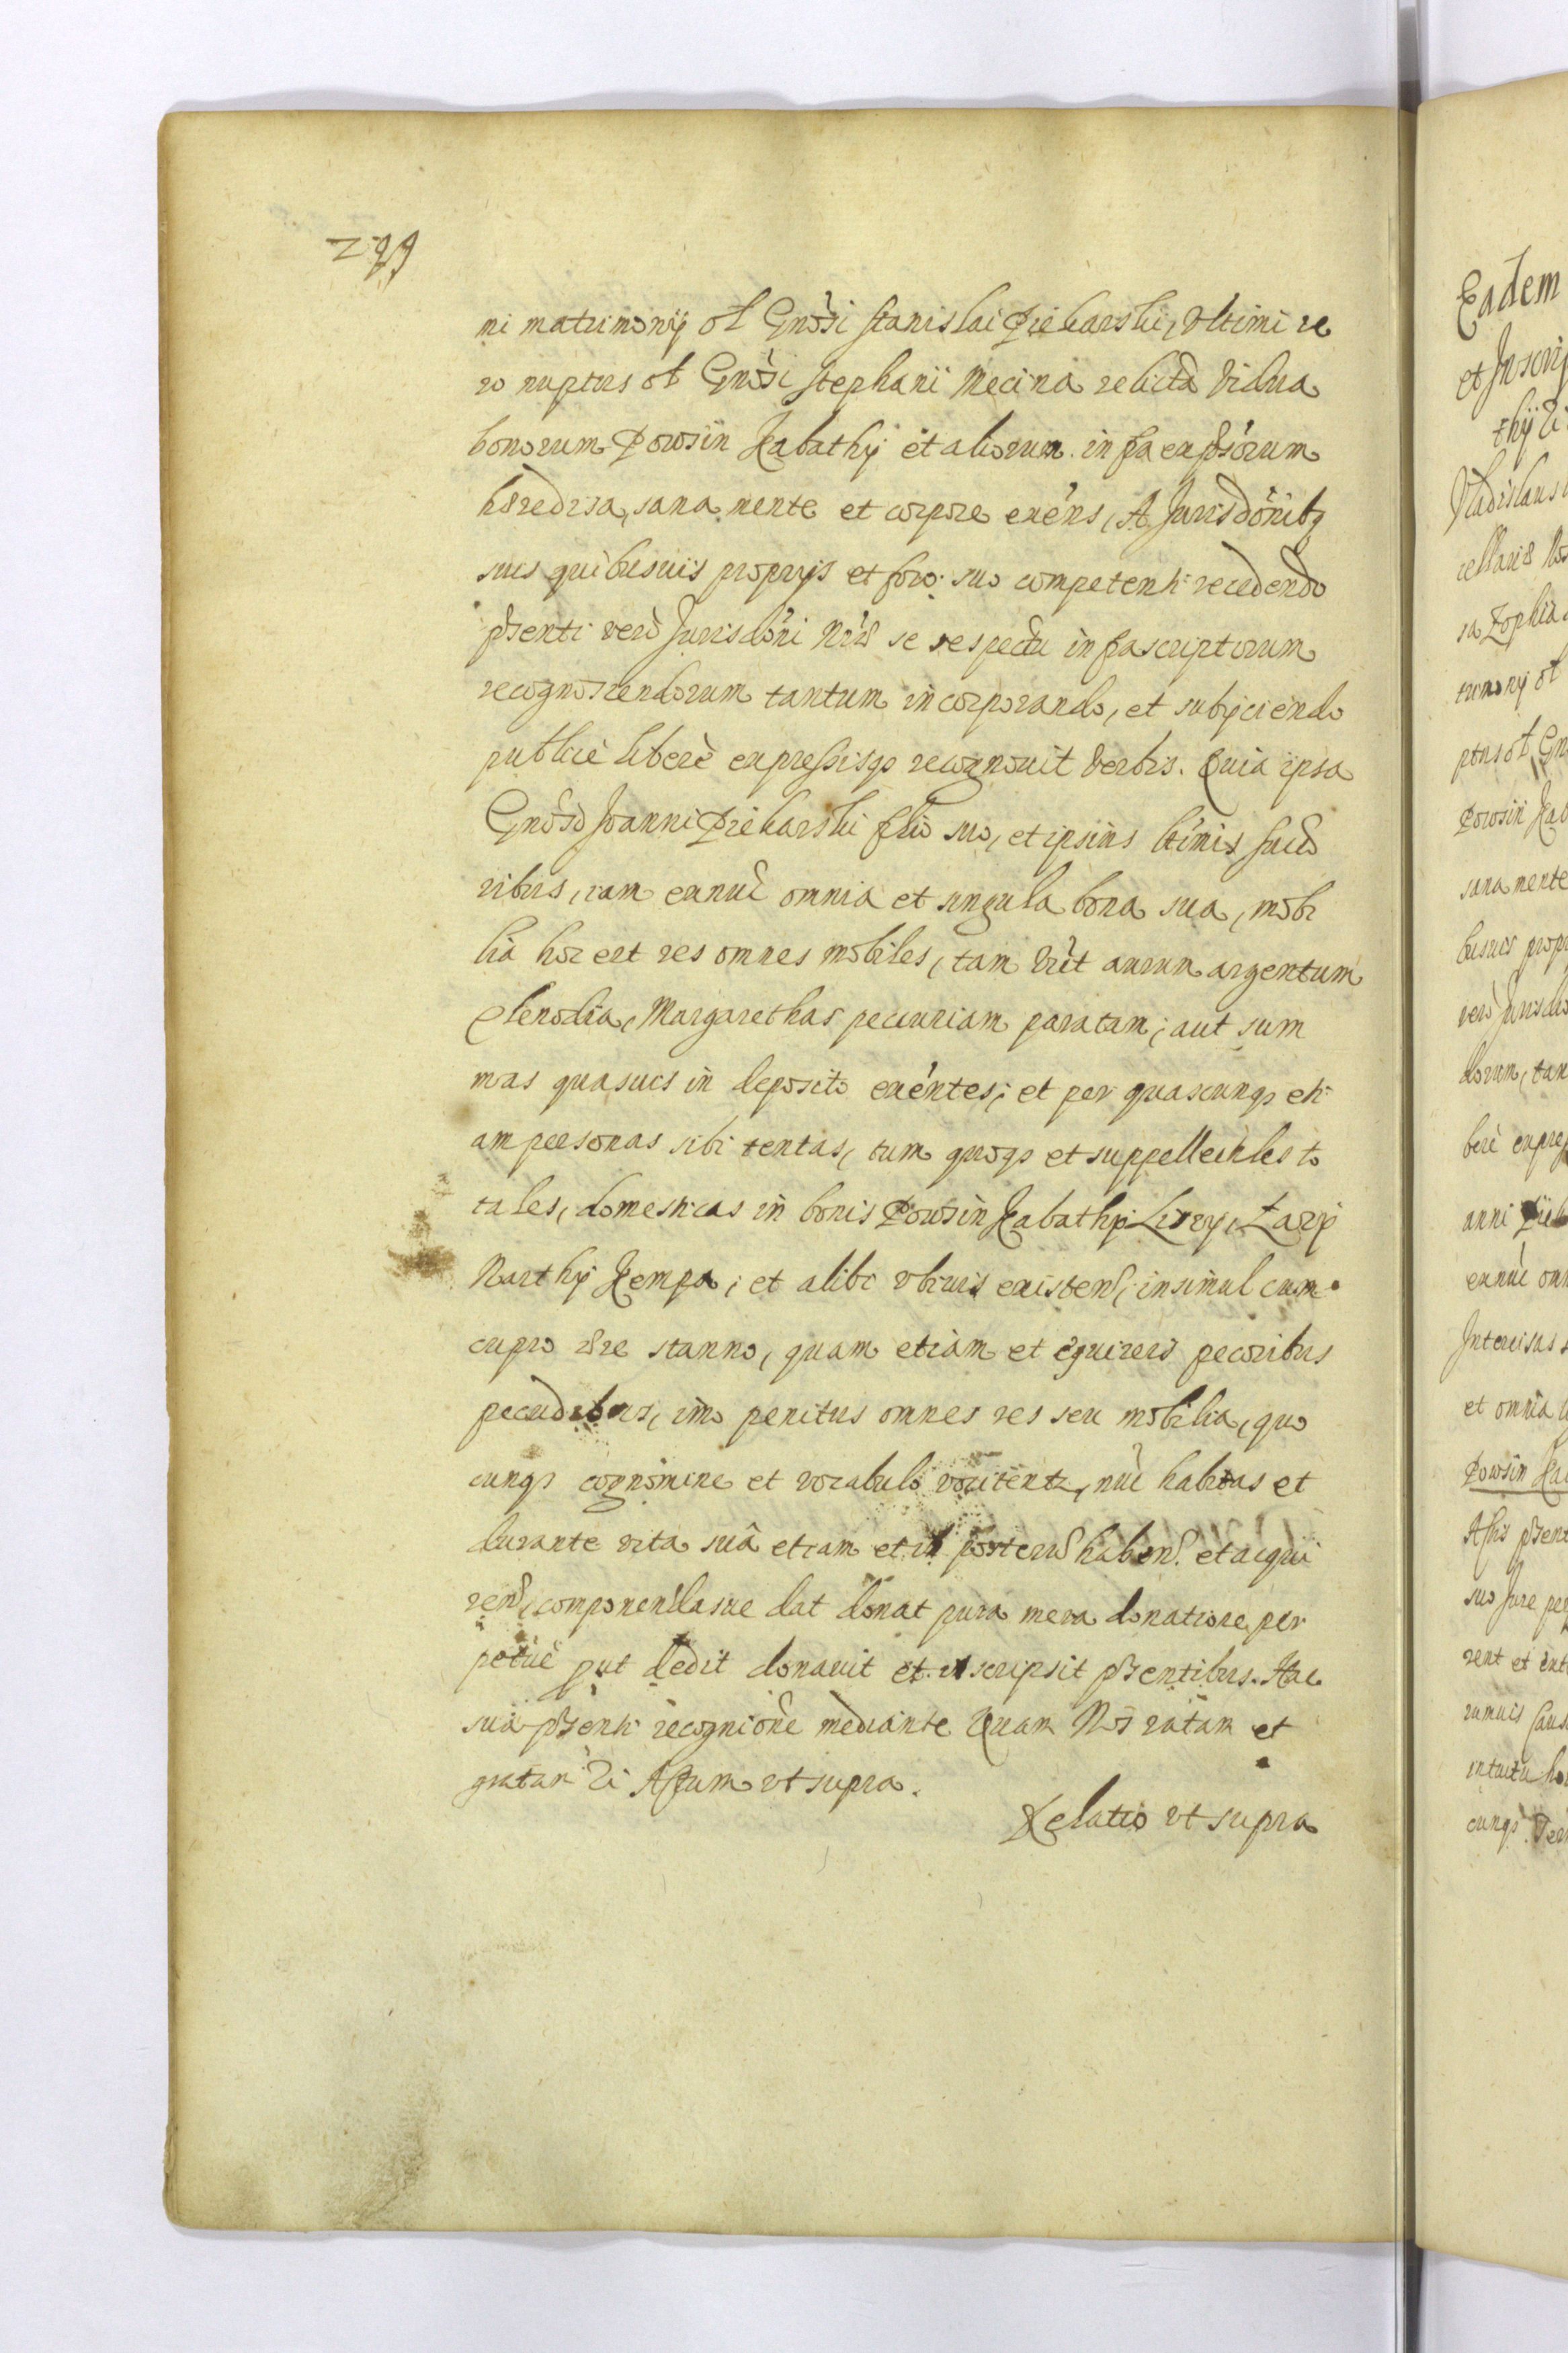 299
ni matrimonÿ ol Gnosi Stanislai Piekarski, Vltimi ve
ro nuptus ol Gnosi Stephani Mecina relicta Vidua
bonorum Powsin Kabathÿ et aliorum infra expsorum
hæredissa, sana mente et corpore exens, A Jurisdonibq
suis quibusuis proprijs et foro suo competenti recedendo
pñsenti vero Jurisdoni Nræ se respectu infrascriptorum
recognoscendorum tantum incorporando, et subijciendo
publicè liberè expressisqs recognouit verbis. Quia ipsa
Gnoso Joanni Piekarski filio suo, et ipsius ltimis succes
ribus, iam exnuc omnia et singula bona sua, mobi
lia hoc est res omnes mobiles, tam vict aurum argentum
Clenodia, Margarethas pecuniam paratam, aut sum
mas quasuis in deposito exentes, et per quascunqs eti
am personas sibi tentas, tum quoqs et suppellectiles to
tales, domesticas in bonis Powsin Kabathÿ Lisÿ, Larÿ
Narthÿ Kempa, et alibi vbiuis existen, insimul cum
cupro ære stanno, quam etiam et equireis pecoribus
pecudibus, imo penitus omnes res seu mobilia, quo
cunqs cognomine et vocabulo vocitentr, nuc habitas et
durante vita suâ etiam et in posterum haben. et acqui
ren, componendasue dat donat pura mera donatione per
petuè put dedit donauit et inscripsit pñsentibus. Hac
sua pñsenti recognitione mediante Quam Nos ratam et
gratam Actum vt supra.
Relatio vt supra
Eadem
et Inscrip
thÿ
Vladislaus
cellaris
sa Zophia
trimonÿ ol
ptus ol Gn
Powsin Kab
sana mente
busuis propr
vero Jurisdo
dorum, tan
berè expre
anni Piek
exnuc om
et omnia
Powsin Ka
suo Jure per
rent et int
intuitu ho
cunqs